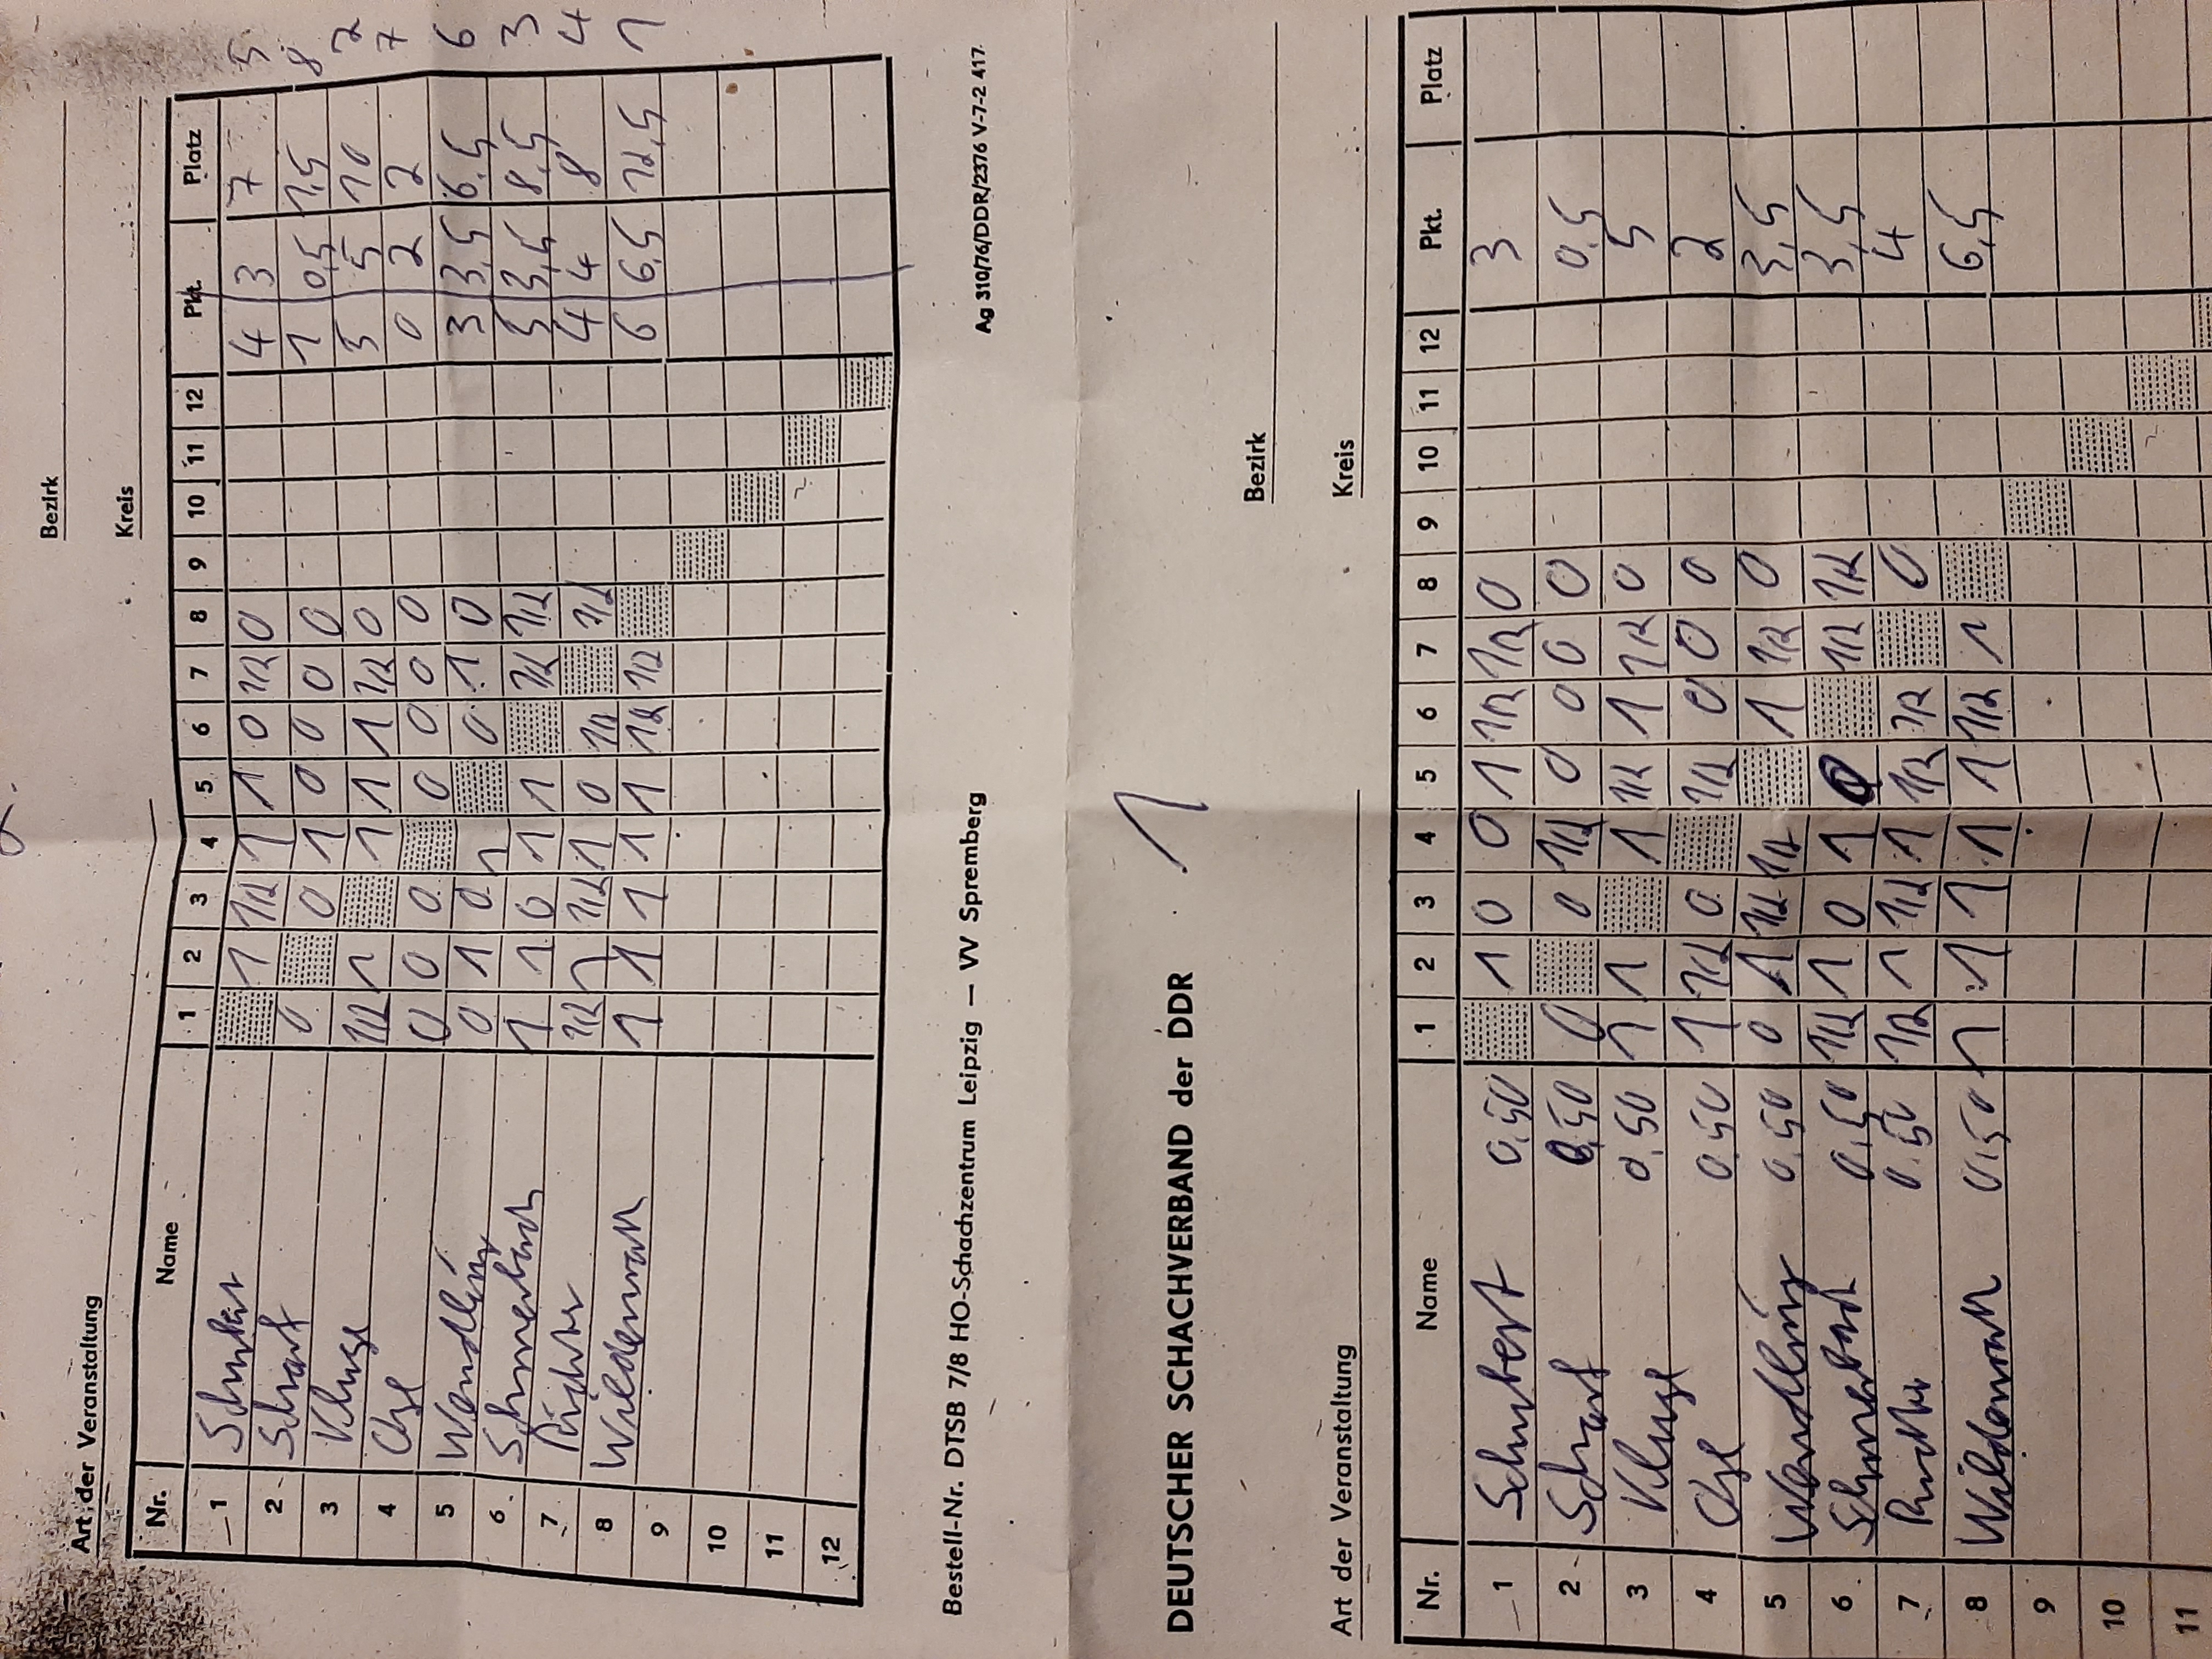 Bezirk
Kreis
Art der Veranstaltung
Nr. Name 1 2 3 4 5 6 7 8 9 10 11 12 Pkt. Platz
1 Schubert 1 1/2 1 1 0 1/2 0 4 3 7 5
2 Scharf 0 0 1 0 0 0 0 1 0,5 1,5 8
3 Kluge 1/2 1 1 1 1 1/2 0 5 5 10 2
4 0 0 0 0 0 0 0 0 2 2 7
5 Wendling 0 1 0 1 0 1 0 3 3,5 6,5 6
6 1 1 0 1 1 1/2 1/2 5 3,5 8,5 3
7 Richter 1/2 1 1/2 1 0 1/2 1/2 4 4 8 4
8 Wildemann 1 1 1 1 1 1/2 1/2 6 6,5 12,5 1
9
10
11
12
Bestell-Nr. DTSB 7/8 HO-Schachzentrum Leipzig — VV Spremberg Ag 310/76/DDR/2376 V-7-2 417
1
DEUTSCHER SCHACHVERBAND der DDR
Bezirk
Kreis
Art der Veranstaltung
Nr. Name 1 2 3 4 5 6 7 8 9 10 11 12 Pkt. Platz
1 Schubert 0,50 1 0 0 1 1/2 1/2 0 3
2 Scharf 0,50 0 0 1/2 0 0 0 0 0,5
3 Kluge 0,50 1 1 1 1/2 1 1/2 0 5
4 0,50 1 1/2 0 1/2 0 0 0 2
5 Wendling 0,50 0 1 1/2 1/2 1 1/2 0 3,5
6 0,50 1/2 1 0 1 0 1/2 1/2 3,5
7 Richter 0,50 1/2 1 1/2 1 1/2 1/2 0 4
8 Wildemann 0,50 1 1 1 1 1 1/2 1 6,5
9
10
11